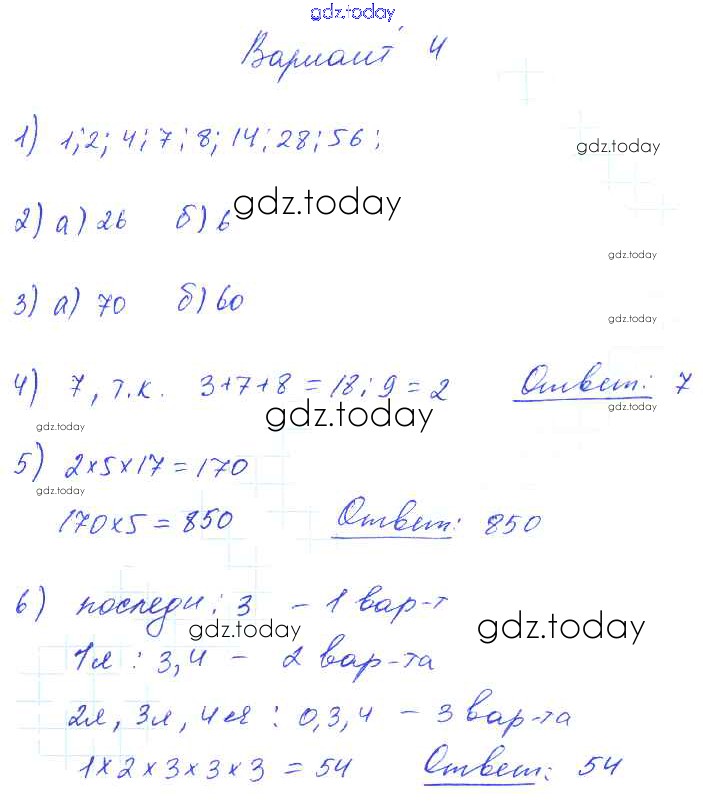 gdz.today
Вариант 4
1) 1; 2; 4; 7; 8; 14; 28; 56;
gdz.today
2) а) 26 б) 6
gdz.today
gdz.today
3) а) 70 б) 60
gdz.today
4) 7, т.к. 3+7+8=18:9=2 Ответ: 7
gdz.today
gdz.today
gdz.today
5) 2×5×17=170
gdz.today
170×5=850 Ответ: 850
6) последн: 3 - 1 вар-т
gdz.today
gdz.today
1я: 3,4 - 2 вар-та
2я, 3я, 4ая: 0,3,4 - 3 вар-та
1×2×3×3×3=54 Ответ: 54